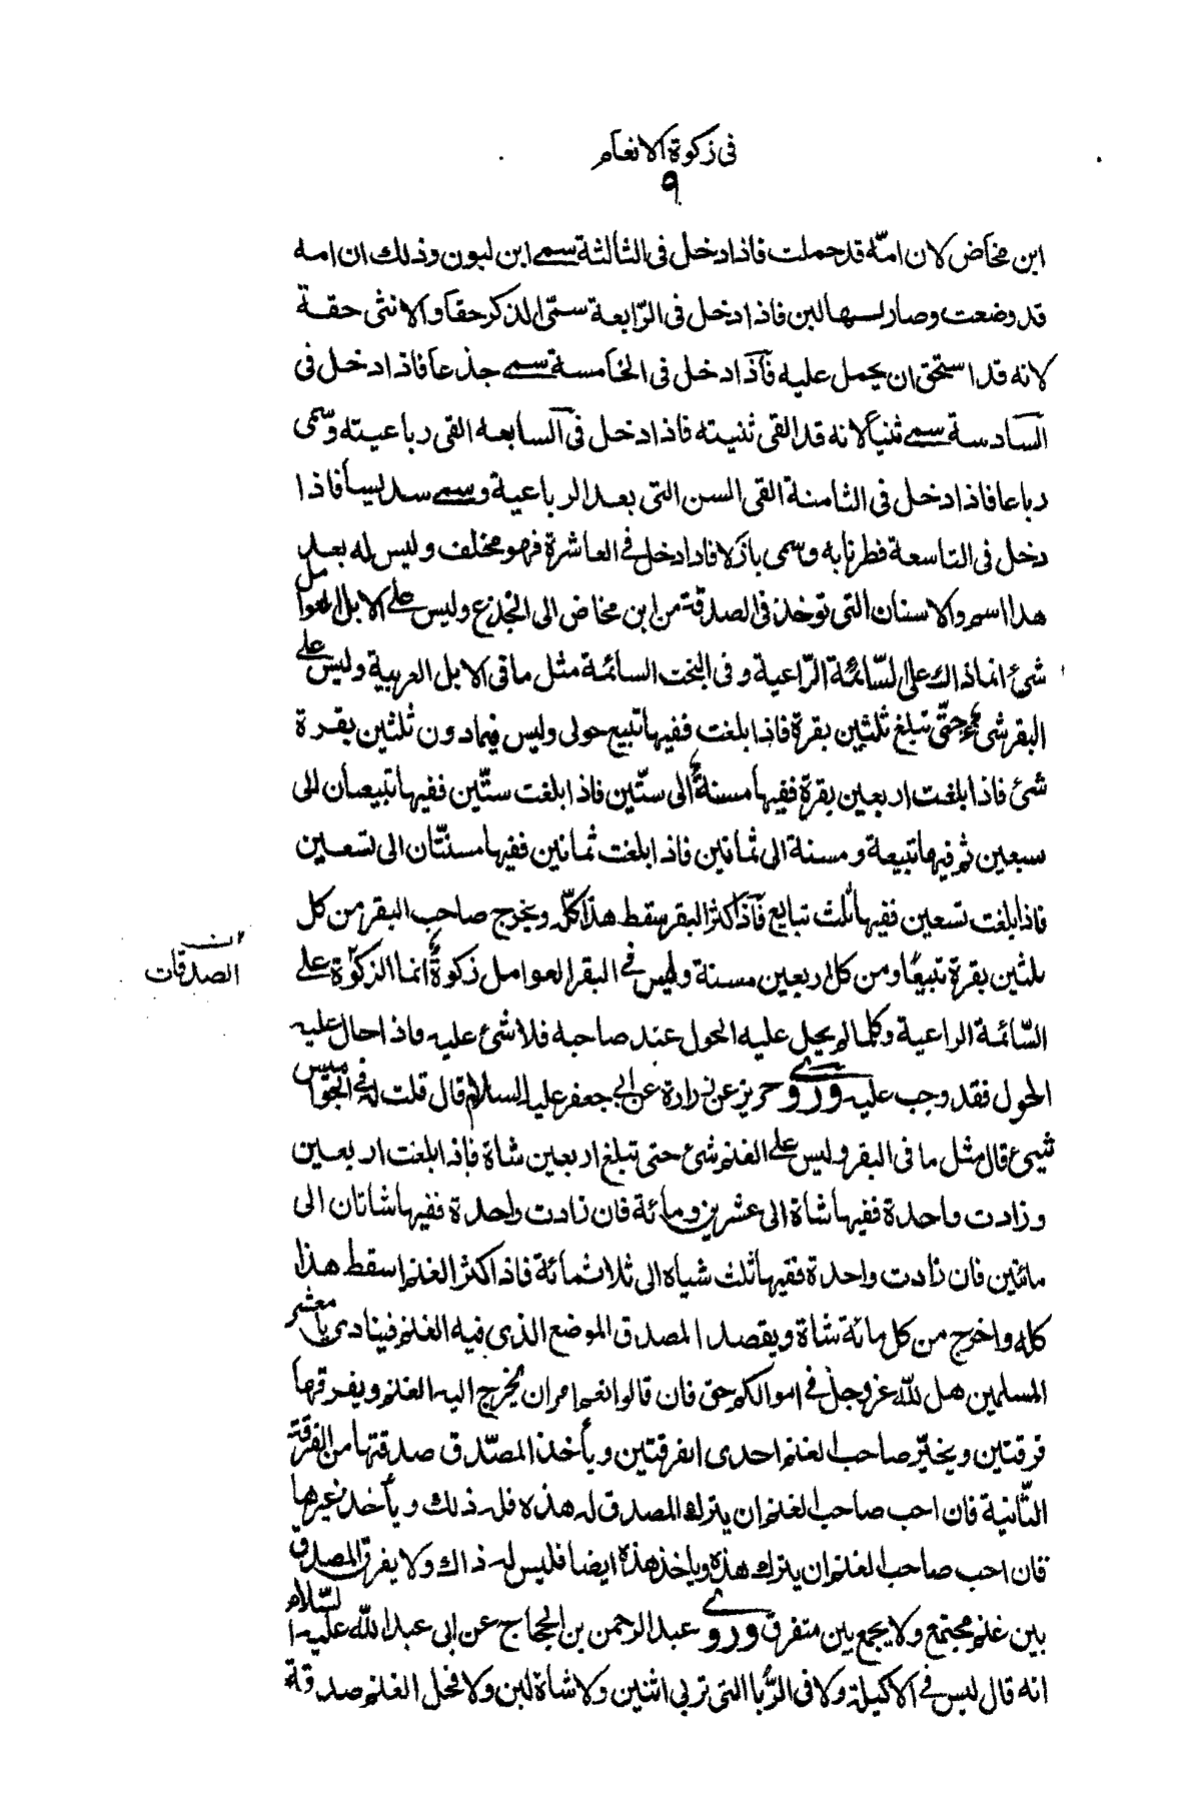 فى زكوة الانعام
٩
ابن مخاض لان امّه قد حملت فاذا دخل فى الثالثة سمى ابن لبون وذلك ان امه
قد وضعت وصار لها لبن فاذا دخل فى الرّابعة سمّى الذكر حقا والانثى حقة
لانه قد استحق ان يحمل عليه فاذا دخل فى الخامسة سمى جذعا فاذا دخل فى
السادسة سمى ثنياً لانه قد القى ثنيته فاذا دخل فى السابعه القى رباعيته وسمى
رباعا فاذا دخل فى الثامنة القى السن التى بعد الرباعية وسمى سديسا فاذا
دخل فى التاسعة فطر نابه وسمى بازلا فاذا دخل فى العاشرة فهو مخلف وليس له بعد
هذا اسم والاسنان التى توخذ فى الصدقة من ابن مخاض الى الجذع وليس على الابل العوامل
شئ انما ذاك على السّائمة الرّاعية وفى البخت السائمة مثل ما فى الابل العربية وليس على
البقر شئ حتّى تبلغ ثلثين بقرة فاذا بلغت ففيها تبيع حولى وليس فيما دون ثلثين بقرة
شئ فاذا بلغت اربعين بقرة ففيها مسنة الى ستّين فاذا بلغت ستّين ففيها تبيعان الى
سبعين ثم فيها تبيعة ومسنة الى ثمانين فاذا بلغت ثمانين ففيها مسنتّان الى تسعين
فاذا بلغت تسعين ففيها ثلث تبايع فاذا كثر البقر سقط هذا كلّه ويخرج صاحب البقر من كل
ثلثين بقرة تبيعًا ومن كل اربعين مسنة وليس فى البقر العوامل زكوة انما الزكوة على
الصدقات
السّائمة الراعية وكلما لم يحل عليه الحول عند صاحبه فلا شئ عليه فاذا حال عليه
الحول فقد وجب عليه وروى حريز عن زرارة عن ابى جعفر عليه السلام قال قلت له فى الجواميس
شيئ قال مثل ما فى البقر وليس على الغنم شئ حتى تبلغ اربعين شاة فاذا بلغت اربعين
وزادت واحدة ففيها شاة الى عشرين ومائة فان زادت واحدة ففيها شاتان الى
مائتين فان زادت واحدة ففيها ثلث شياه الى ثلاثمائة فاذا كثر الغنم اسقط هذا
كله واخرج من كل مائة شاة ويقصد المصدق الموضع الذى فيه الغنم فينادى يا معشر
المسلمين هل لله عز وجل فى اموالكم حق فان قالوا نعم امر ان يخرج اليه الغنم ويفرقها
فرقتين ويخيّر صاحب الغنم احدى الفرقتين ويأخذ المصّدق صدقتها من الفرقة
الثّانية فان احب صاحب الغنم ان يترك المصدق له هذه فله ذلك ويأخذ غيرها
فان احب صاحب الغنم ان يترك هذه وياخذ هذه ايضا فليس له ذاك ولا يفرق المصدق
بين غنم مجتمع ولا يجمع بين متفرق وروى عبد الرحمن بن الحجاج عن ابى عبد الله عليه السّلام
انه قال ليس فى الاكيلة ولا فى الرّبا التى تربى اثنين ولا شاة لبن ولا فحل الغنم صدقة